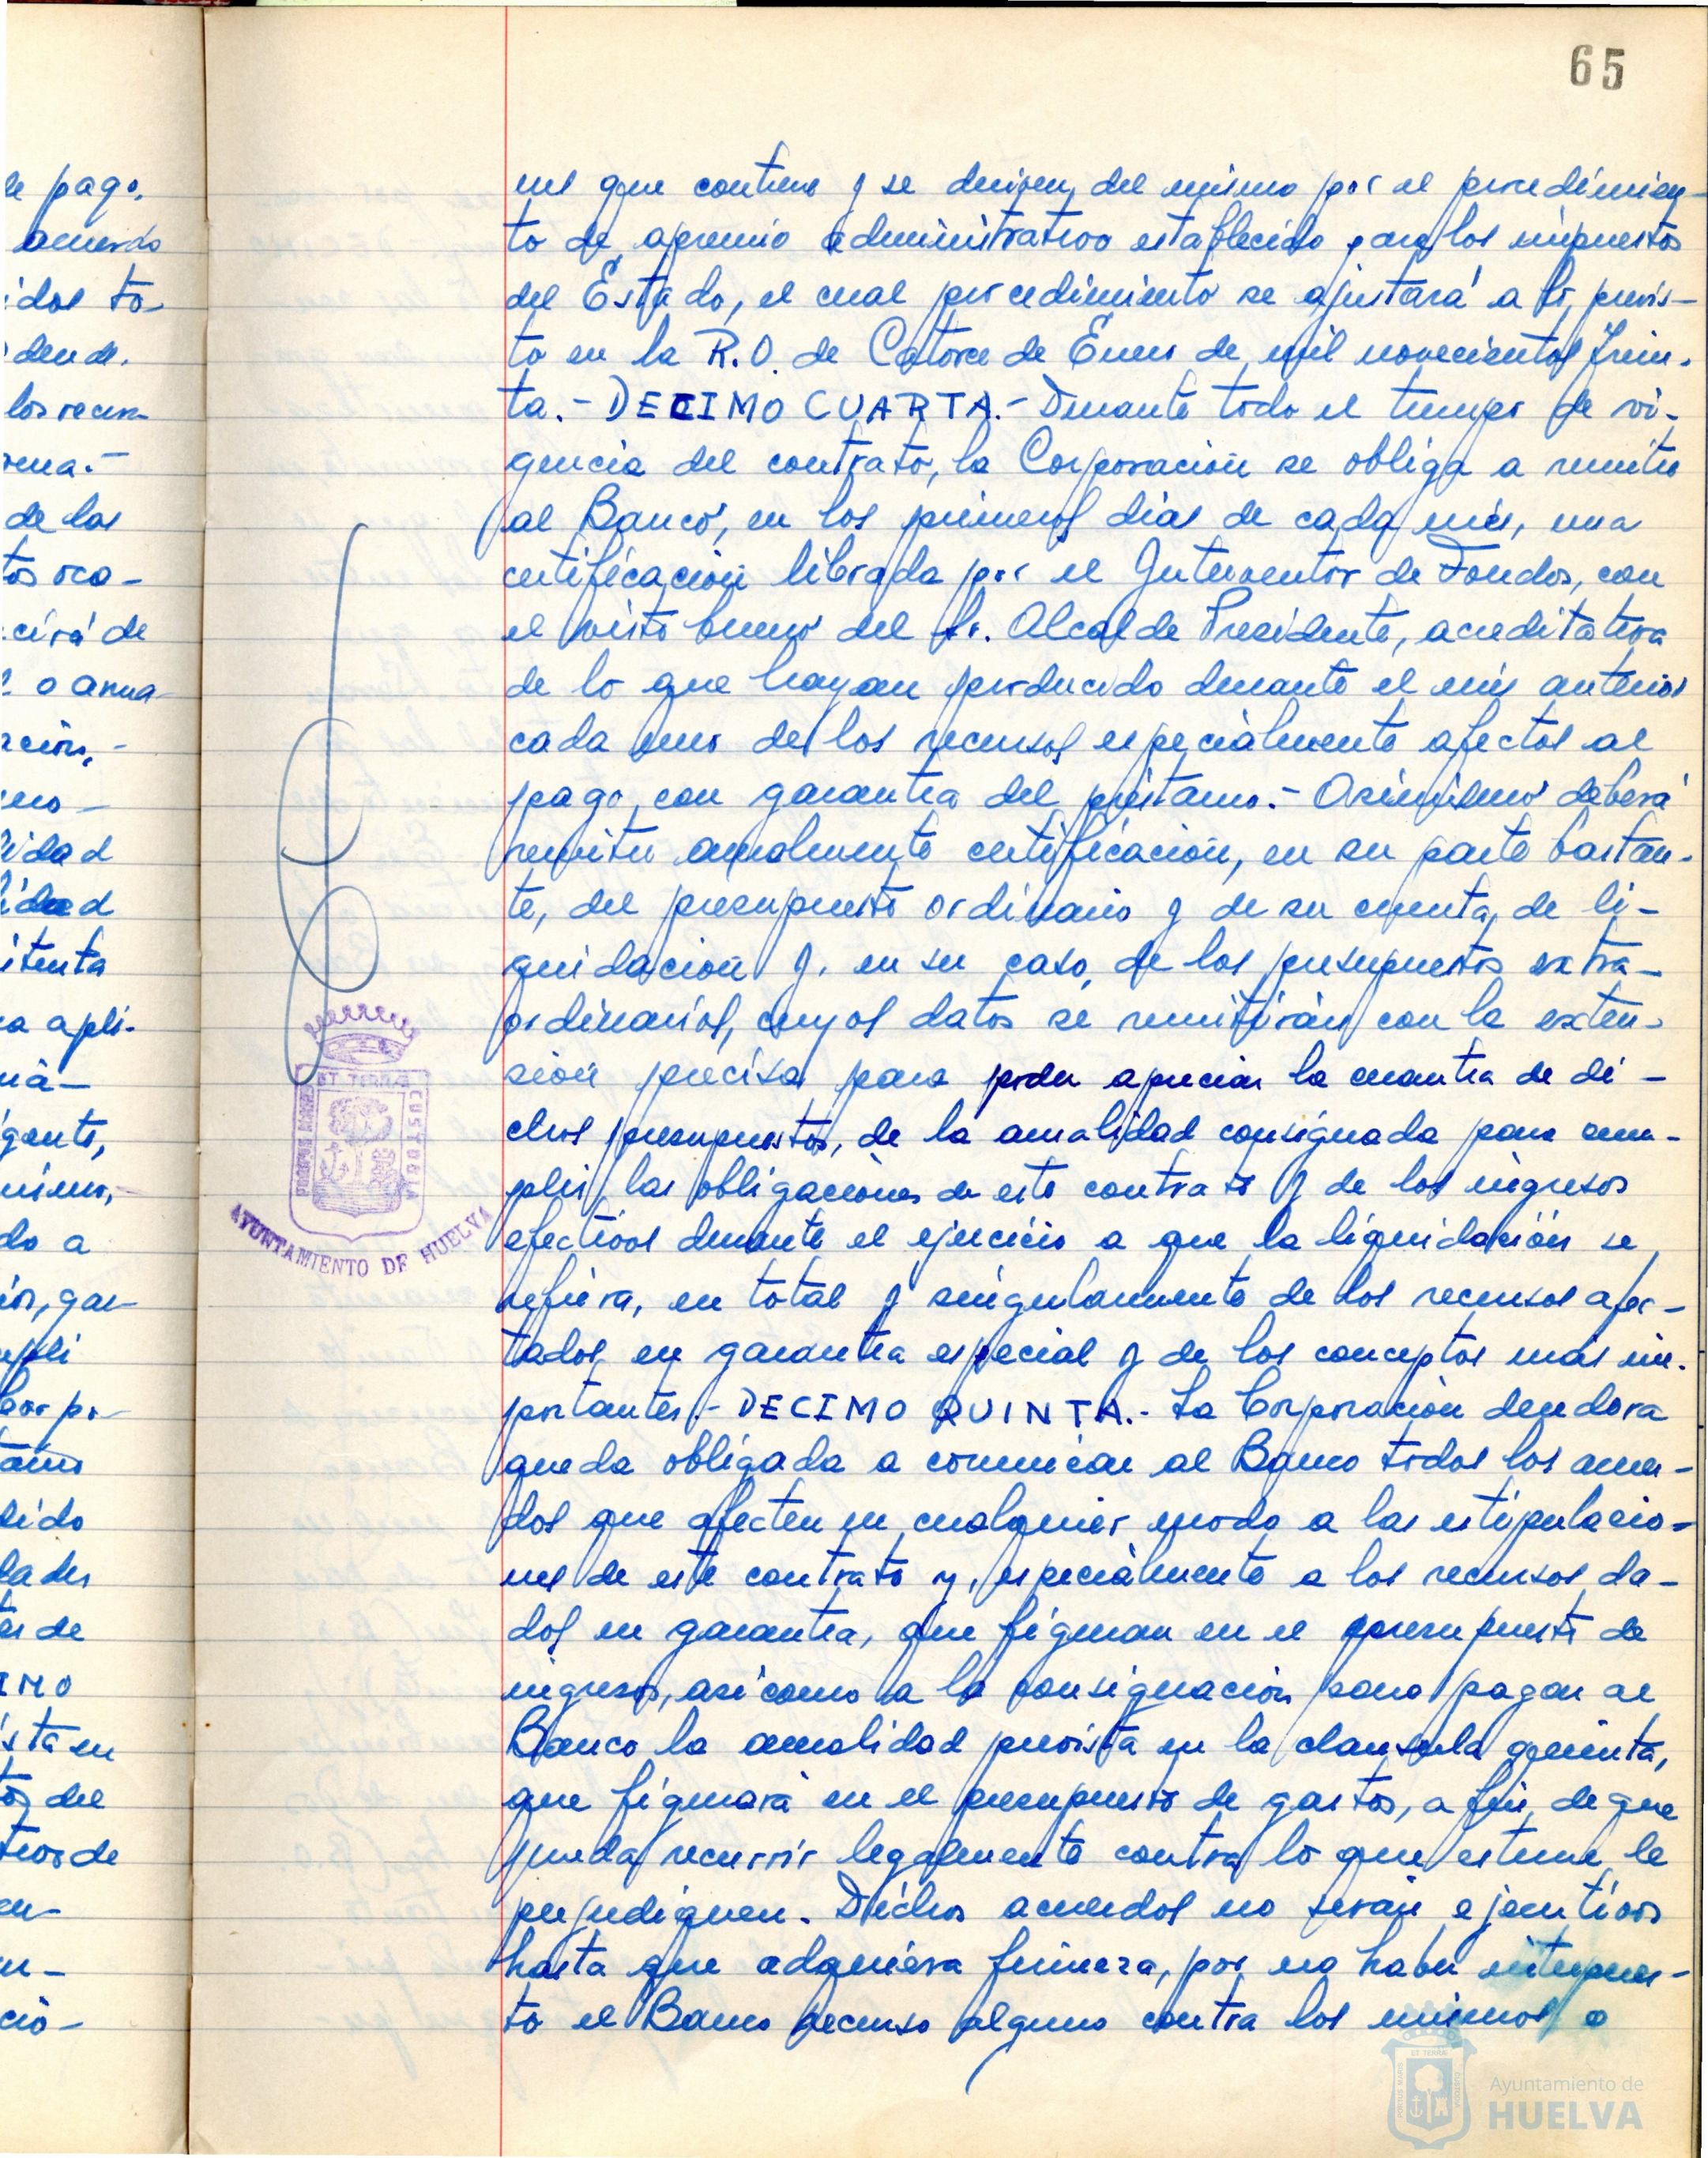 65
nes que contiene y se deriven, del mismo por el procedimien-
to de apremio administrativo establecido para los impuestos
del Estado, el cual procedimiento se ajustará a lo, previs-
to en la R.O. de Catorce de Enero de mil novecientos Trein-
ta.- DECIMO CUARTA.- Durante todo el tiempo de vi-
gencia del contrato, la Corporación se obliga a remitir
al Banco, en los primeros dias de cada mes, una
certificación librada por el Interventor de Fondos, con
el visto bueno del Sr. Alcalde Presidente, acreditativa
de lo que hayan producido durante el mes anterior
cada uno de los recursos especialmente afectos al
pago, con garantia del préstamo.- Asimismo deberá
remitir anualmente certificación, en su parte bastan-
te, del presupuesto ordinario y de su cuenta, de li-
quidación y, en su caso, de los presupuestos extra-
ordinarios, cuyos datos se remitirán con la exten-
sión precisa para poder apreciar la cuantia de di-
chos presupuestos, de la anualidad consignada para cum-
plir las obligaciones de este contrato y de los ingresos
efectivos durante el ejercicio a que la liquidación se
refiera, en total y singularmente de los recursos afec-
tados, en garantia especial y de los conceptos más im-
portantes.- DECIMO QUINTA.- La Corporación deudora
queda obligada a comunicar al Banco todos los acuer-
dos que afecten en cualquier modo a las estipulacio-
nes de este contrato y, especialmente a los recursos, da-
dos en garantia, que figuran en el presupuesto de
ingresos, asi como a la consignación para pagar al
Banco la anualidad prevista en la clausula quinta,
que figurará en el presupuesto de gastos, a fin, de que
pueda recurrir legalmente contra lo que estime le
perjudiquen. Dichos acuerdos no serán ejecutivos
hasta que adquiera firmeza, por no haber interpues-
to el Banco recurso alguno contra los mismos o
ET TERRAE
CUSTODIA
AYUNTAMIENTO DE HUELVA
de pago.
acuerdo
idos to-
los recur-
de las
cirá de
o anua-
lidad
a apli-
do a
IMO
del
Ayuntamiento de
HUELVA